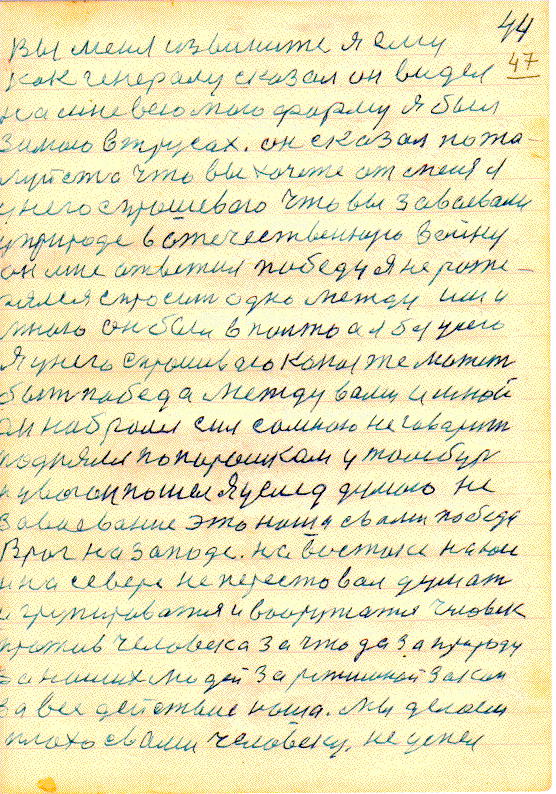 44
47
Вы меня извините я ему
как генералу сказал он видел
на мне всю мою форму я был
зимою в трусах. он сказал пожа-
луйсто что вы хочете от меня я
у него спрошеваю что вы заваевали
у природе в отечественную войну
он мне ответил победу я не
спросит одно между им и
мною он был в польто а я без у него
я у него спрошиваю какая же может
быт победа между вами и мной
он набрался сил самною не говарит
поднялся по и
пошел я у след думаю не
заваевание это наша свами победа
Враг на западе. на востоке на юге
и на севере не перестовал думат
и групироватя и вооружатя человек
против человека за что да за природу
за наших людей за закон
за все действие наша. Мы делаем
плохо свами человеку. не успел